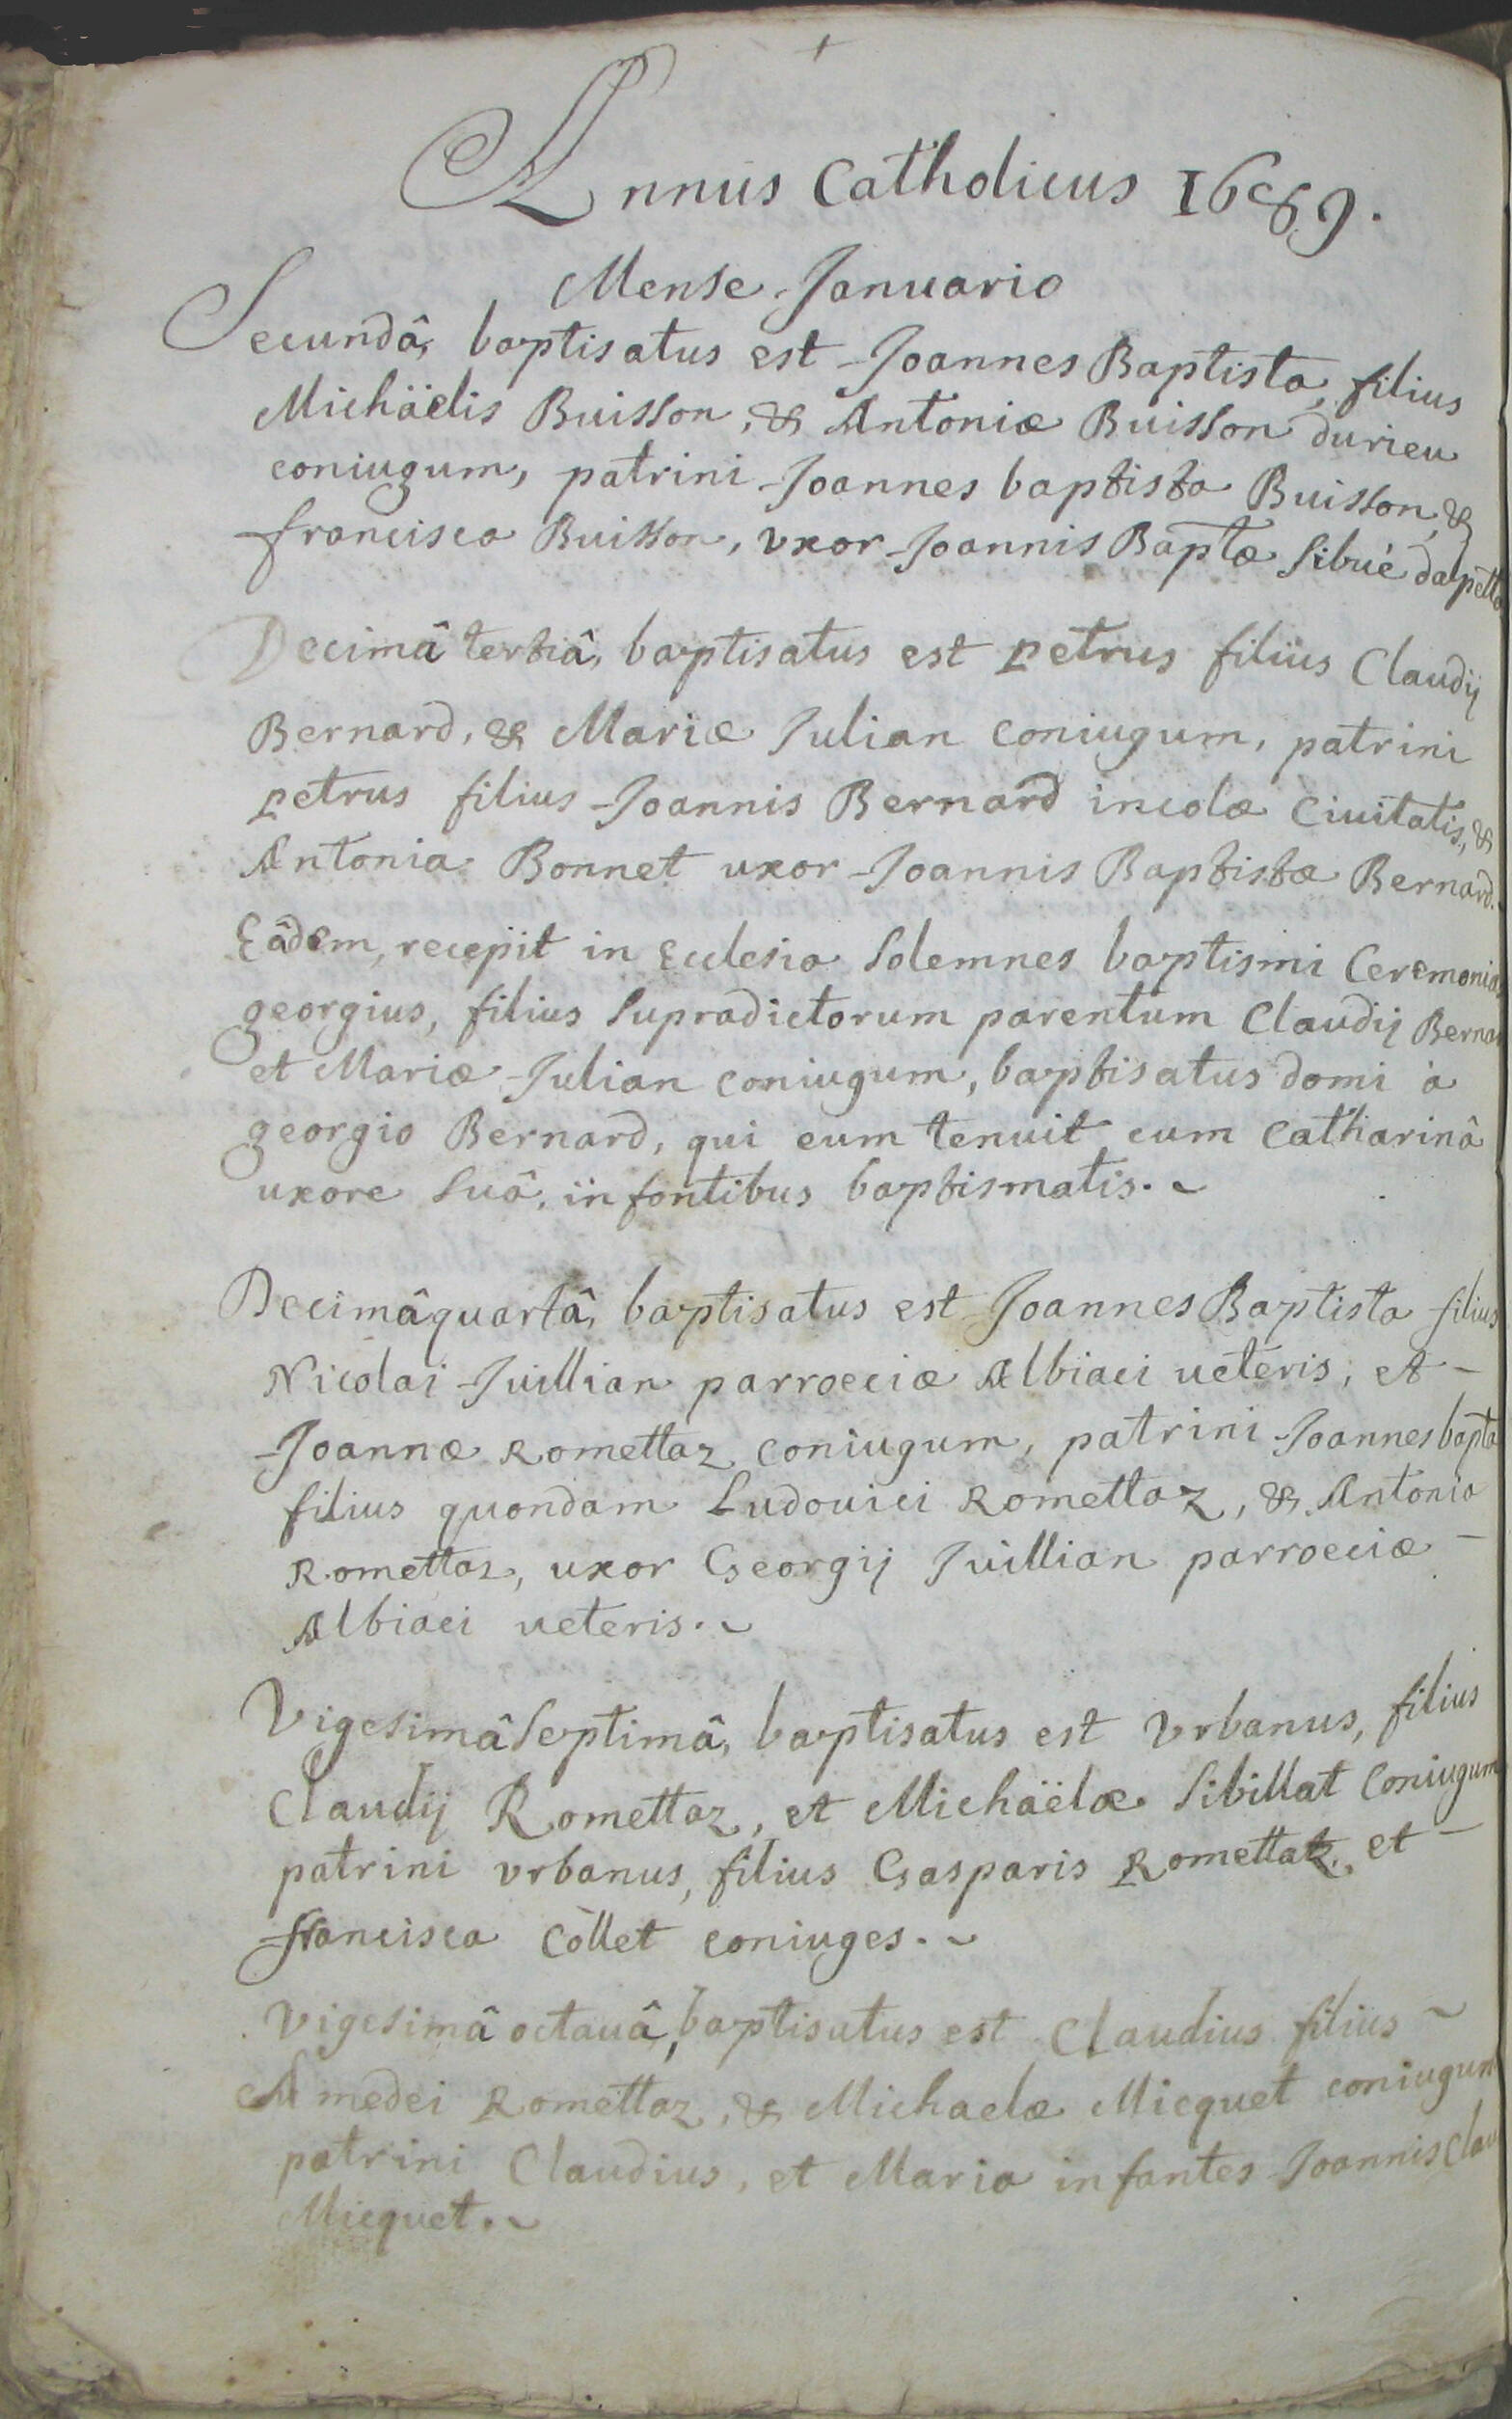 Annus Catholicus 1689.
Mense Januario
Secundâ, baptisatus est Joannes Baptista, filius
Michäelis Buisson, & Antoniæ Buisson durieu
coniugum, patrini Joannes baptista Buisson, &
francisca Buisson, vxor Joannis Baptæ Sibué dalpetta
Decimâ tertiâ, baptisatus est petrus filius Claudij
Bernard, & Mariæ Julian coniugum, patrini
petrus filius Joannis Bernard incolæ Ciuitatis, &
Antonia Bonnet uxor Joannis Baptistæ Bernard.
Eâdem, recepit in Ecclesia Solemnes baptismi Ceremonias
georgius, filius Supradictorum parentum Claudij Bernar
et Mariæ Julian coniugum, baptisatus domi à
georgio Bernard, qui eum tenuit cum Catharinâ
uxore Suâ, in fontibus baptismatis.
Decimâquartâ, baptisatus est Joannes Baptista filius
Nicolai Juillian parroeciæ Albiaci ueteris, et
Joannæ Romettaz coniugum, patrini Joannes bapta
filius quondam Ludouici Romettaz, & Antonia
Romettaz, uxor Georgij Juillian parroeciæ
Albiaci ueteris.
VigesimâSeptimâ, baptisatus est Vrbanus, filius
Claudij Romettaz, et Michaëlæ Sibillat Coniugum
patrini vrbanus, filius Gasparis Romettaz, et
francisca Còllet coniuges.
Vigesimâ octauâ, baptisatus est Claudius filius
Amedei Romettaz, & Michaelæ Micquet coniugum
patrini Claudius, et Maria infantes Joannis Clau
Micquet.